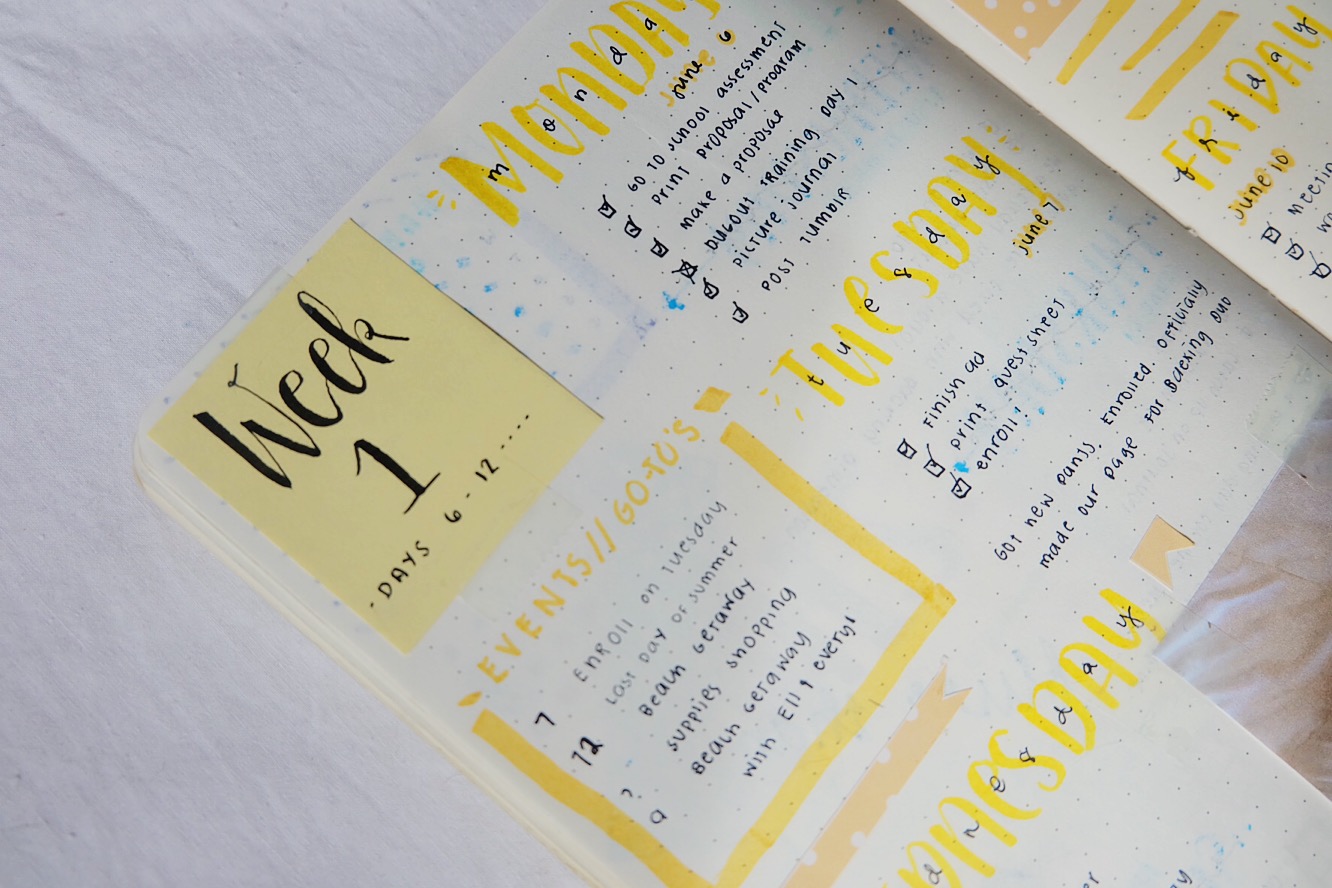 Week
1
. DAYS 6 - 12 ....
MONDAY
monday
june 6
GO TO SCHOOL ASSESSMENT
PRINT PROPOSAL/PROGRAM
MAKE A PROPOSAL
DUGOUT TRAINING DAY 1
PICTURE JOURNAL
POST TUMBLR
EVENTS//GO-TO'S
7 ENROLL ON TUESDAY
12 LAST DAY OF SUMMER
BEACH GETAWAY
? SUPPLIES SHOPPING
9 BEACH GETAWAY
WITH Ell & every1
TUESDAY
tuesday
june 7
FINISH AD
print guest sheet
enroll!
GOT new pants. Enrolled. OFFICIALLY
made our page FOR
DNESDAY
dnesday
FRIDAY
friday
june 10